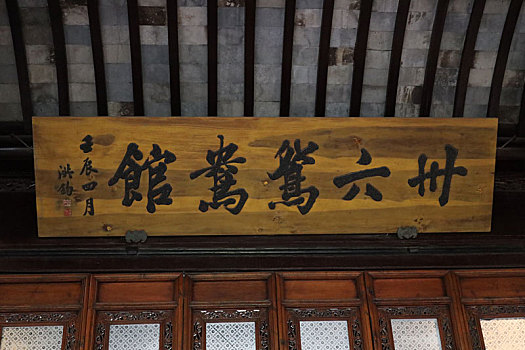 卅六鴛鴦館
壬辰四月
洪鈞